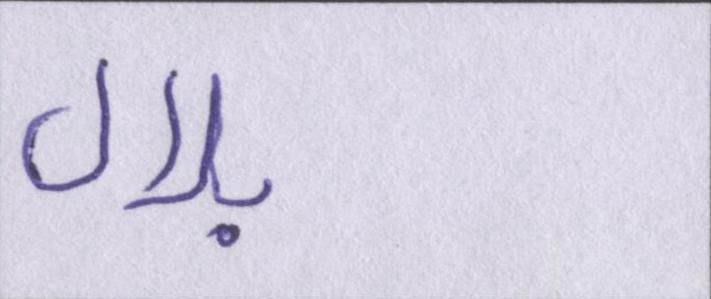 بلال